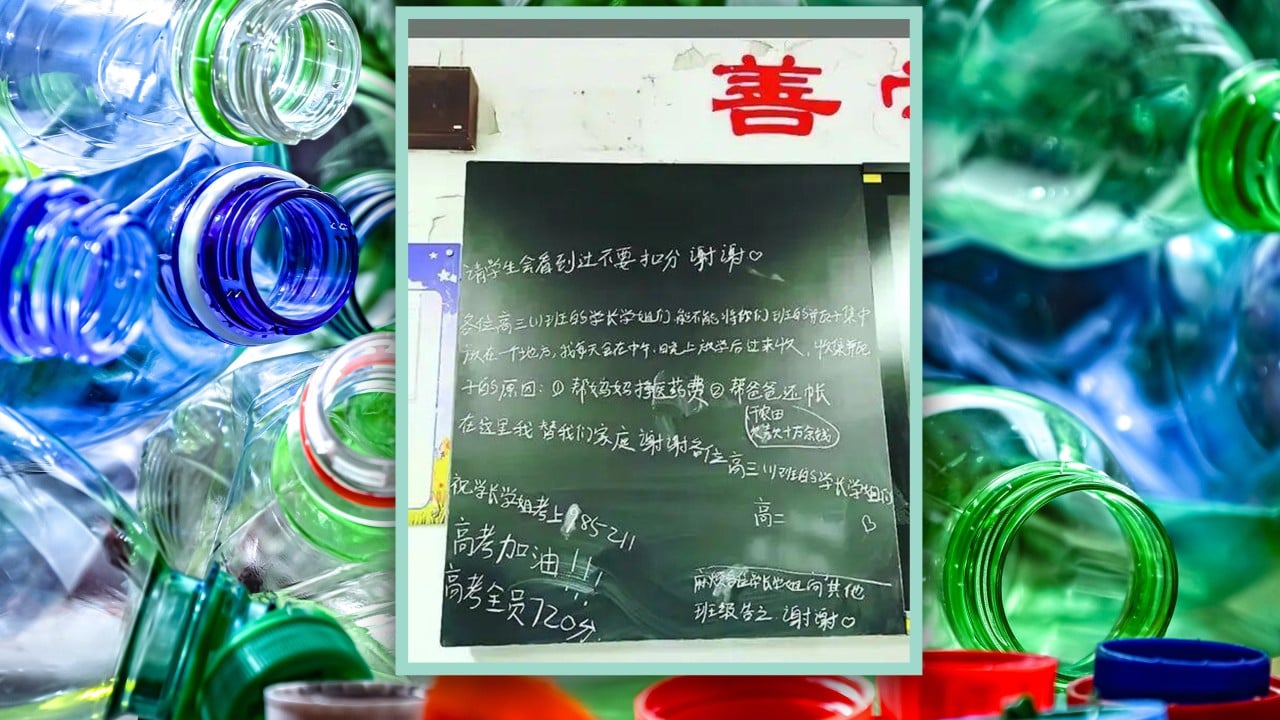 善
请学生会看到过不要扣分 谢谢♡
各位高三(1)班的学长学姐们 能不能将你们班的瓶子集中
放在一个地方,我每天会在中午、晚上放学后过来收,收集瓶
子的原因:① 帮妈妈挣医药费② 帮爸爸还帐
农田
欠款十万余钱
在这里我替我们家庭谢谢各位高三(1)班的学长学姐们
祝学长学姐考上985211
高二
高考加油!!!
高考全员720分
麻烦各位学长学姐向其他
班级告之 谢谢♡